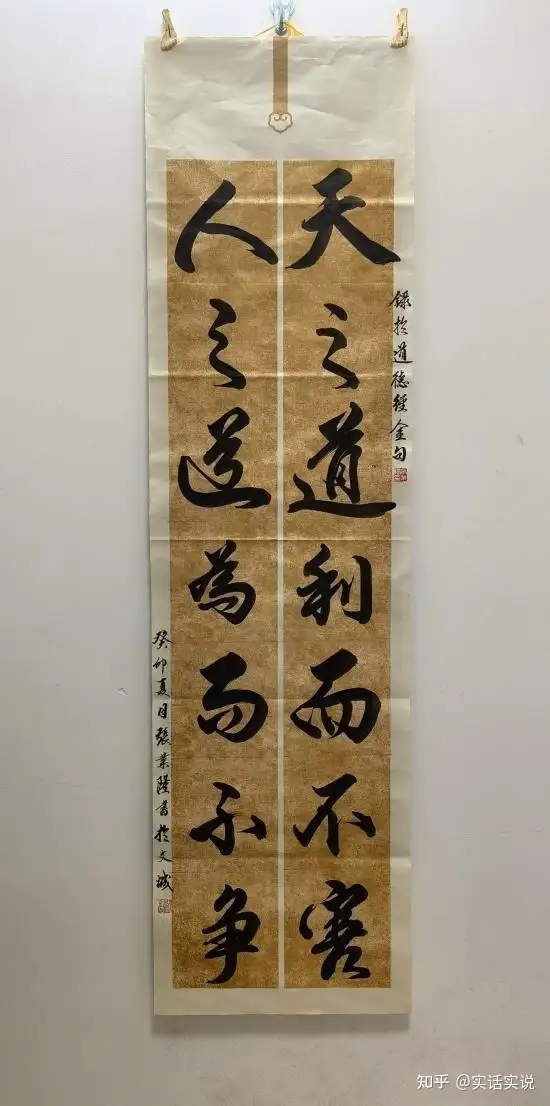 天之道利而不害
人之道為而不争
錄於道德經金句
癸卯夏月張業隆書於文城
知乎 @实话实说